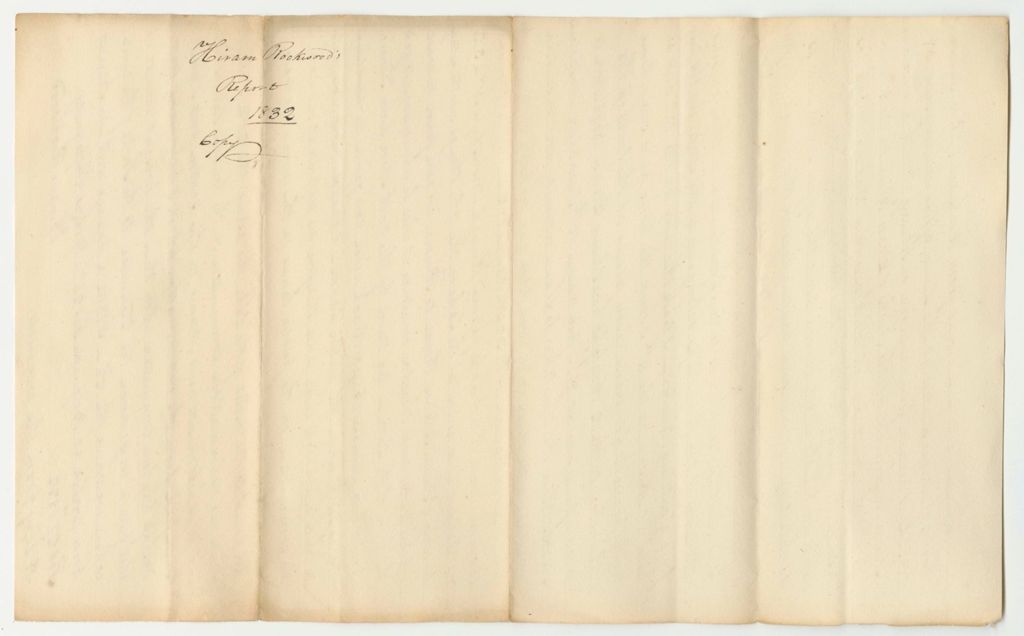 Hiram Rockwood's
Report
1832
Copy